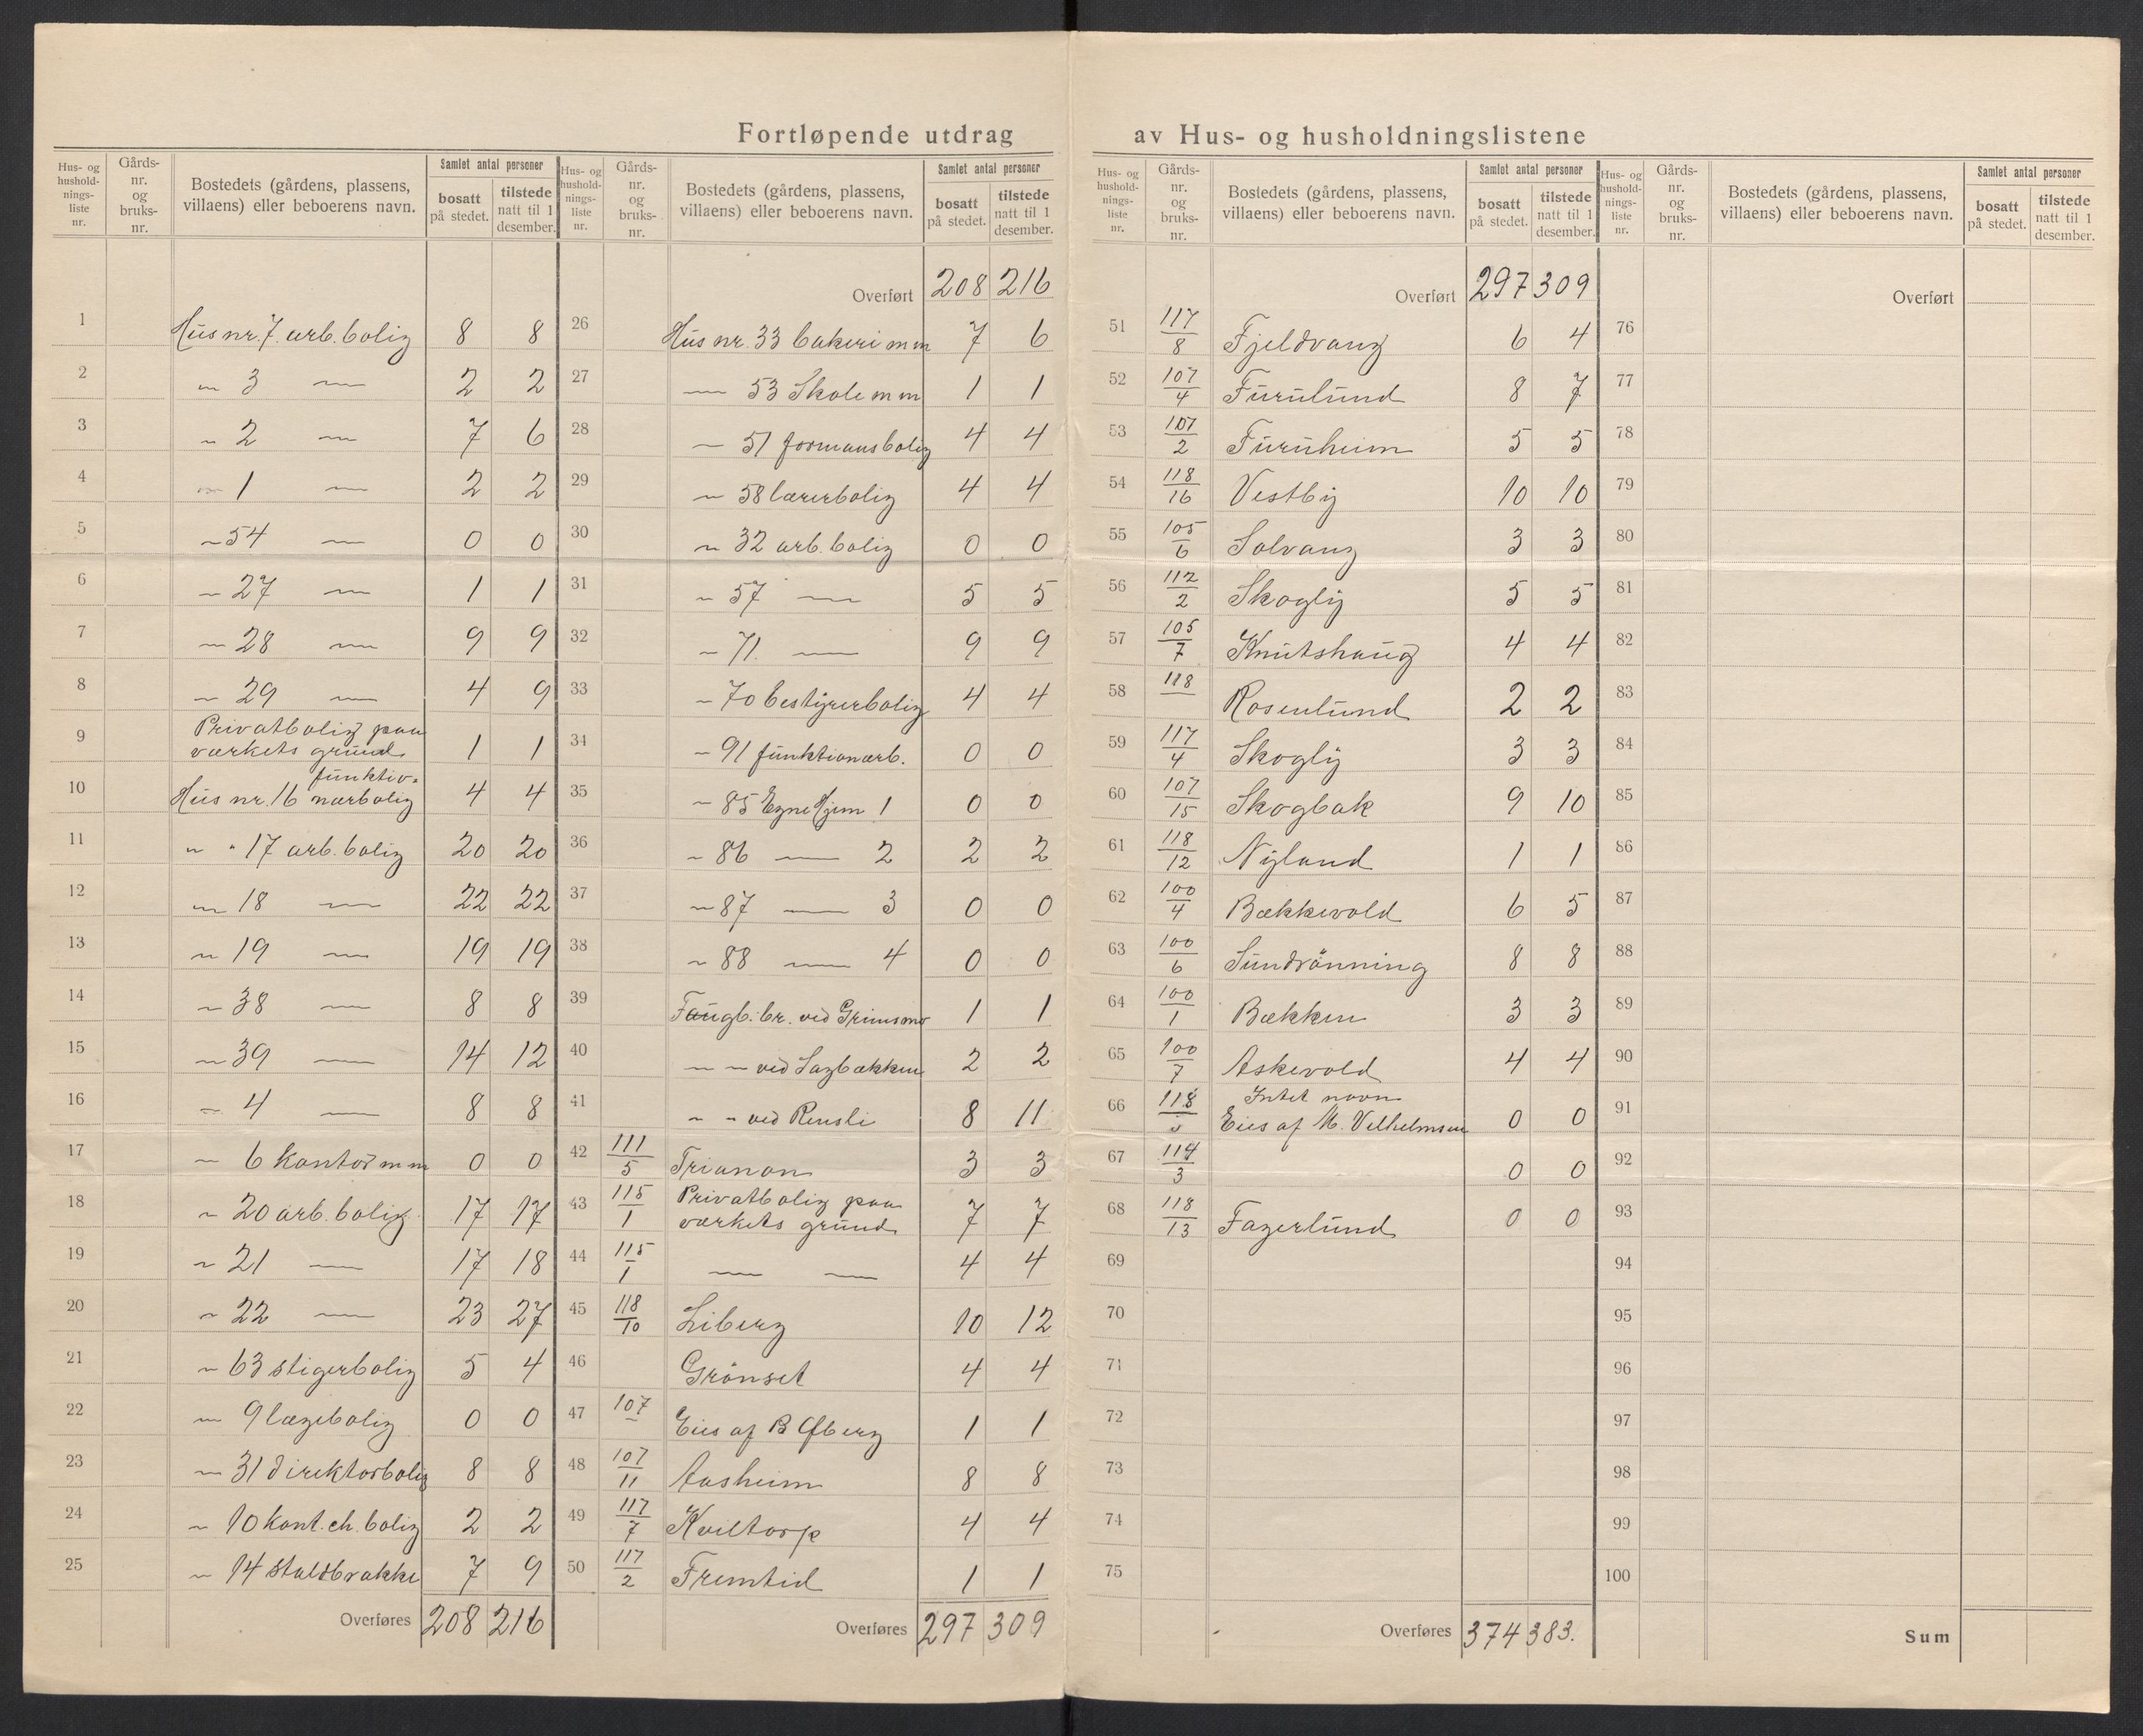 Fortløpende utdrag av Hus- og husholdningslistene
Hus- og husholdnings-liste nr. Gårds-nr. og bruks-nr. Bostedets (gårdens, plassens, villaens) eller beboerens navn. Samlet antal personer bosatt på stedet. tilstede natt til 1 desember.
1 Hus nr. 7. arb. bolig 8 8
2 " 3 — 2 2
3 " 2 — 7 6
4 " 1 — 2 2
5 " 54 — 0 0
6 " 27 — 1 1
7 " 28 — 9 9
8 " 29 — 4 9
9 Privatbolig paa
værkets grund 1 1
10 Hus nr. 16 funktio-
nærbolig 4 4
11 " " 17 arb. bolig 20 20
12 " 18 — 22 22
13 " 19 — 19 19
14 " 38 — 8 8
15 " 39 — 14 12
16 " 4 — 8 8
17 " 6 kontor m m 0 0
18 " 20 arb. bolig 17 17
19 " 21 — 17 18
20 " 22 — 23 27
21 " 63 stigerbolig 5 4
22 " 9 lægebolig 0 0
23 " 31 direktørbolig 8 8
24 " 10 kont. ch. bolig 2 2
25 " 14 staldbrakke 7 9
Overføres 208 216
Hus- og husholdnings-liste nr. Gårds-nr. og bruks-nr. Bostedets (gårdens, plassens, villaens) eller beboerens navn. Samlet antal personer bosatt på stedet. tilstede natt til 1 desember.
Overført 208 216
26 Hus nr. 33 bakeri m m 7 6
27 — 53 Skole m m 1 1
28 " 51 formansbolig 4 4
29 " 58 lærerbolig 4 4
30 " 32 arb. bolig 0 0
31 " 57 — 5 5
32 " 71. — 9 9
33 " 70 bestyrerbolig 4 4
34 " 91 funktionærb. 0 0
35 " 85 Egne Hjem 1 0 0
36 " 86 — 2 2 2
37 " 87 — 3 0 0
38 " 88 — 4 0 0
39 Faugb. br. ved Grimsmo 1 1
40 " " ved Sagbækken 2 2
41 " " ved Rensli 8 11
42 111/5 Trianon 3 3
43 115/1 Privatbolig paa
værkets grund 7 7
44 115/1 — — 4 4
45 118/10 Liberg 10 12
46 Grönset 4 4
47 107/ Eies af B Öfberg 1 1
48 107/11 Aasheim 8 8
49 117/7 Kviltorp 4 4
50 117/2 Fremtid 1 1
Overføres 297 309
Hus- og husholdnings-liste nr. Gårds-nr. og bruks-nr. Bostedets (gårdens, plassens, villaens) eller beboerens navn. Samlet antal personer bosatt på stedet. tilstede natt til 1 desember.
Overført 297 309
51 117/8 Fjeldvang 6 4
52 107/4 Furulund 8 7
53 107/2 Furuheim 5 5
54 118/16 Vestby 10 10
55 105/6 Solvang 3 3
56 112/2 Skogly 5 5
57 105/7 Knutshaug 4 4
58 118/ Rosenlund 2 2
59 117/4 Skogly 3 3
60 107/15 Skogbak 9 10
61 118/12 Nyland 1 1
62 100/4 Bækkevold 6 5
63 100/6 Sundrönning 8 8
64 100/1 Bækken 3 3
65 100/7 Askevold 4 4
66 118/ Intet navn
Eies af M. Vilhelmsen 0 0
67 114/3 0 0
68 118/13 Fagerlund 0 0
69
70
71
72
73
74
75
Overføres 374 383.
Hus- og husholdnings-liste nr. Gårds-nr. og bruks-nr. Bostedets (gårdens, plassens, villaens) eller beboerens navn. Samlet antal personer bosatt på stedet. tilstede natt til 1 desember.
Overført
76
77
78
79
80
81
82
83
84
85
86
87
88
89
90
91
92
93
94
95
96
97
98
99
100
Sum